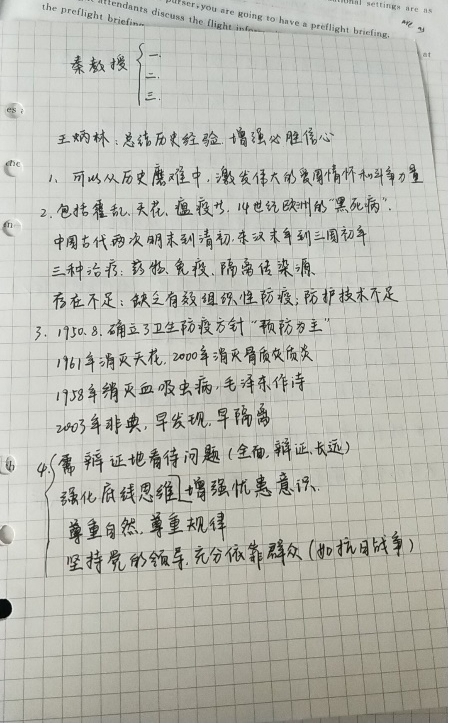 settings are as
attendants discuss the flight
purser, you are going to have a preflight briefing.
the preflight briefing
are
at
秦教授 { 一.
二.
三.
王炳林：总结历史经验 增强必胜信心
1. 可以从历史磨难中，激发伟大的爱国情怀和斗争力量
2. 包括霍乱、天花、瘟疫，14世纪欧洲的“黑死病”.
中国古代两次 明末到清初、东汉末年到三国初年
三种治疗：药物、免疫、隔离传染源
存在不足：缺乏有效组织性防疫；防护技术不足
3. 1950.8. 确立了卫生防疫方针“预防为主”
1961年消灭天花，2000年消灭骨质灰质炎
1958年消灭血吸虫病，毛泽东作诗
2003年非典，早发现，早隔离
4. { 需辩证地看待问题（全面、辩证、长远）
强化底线思维 增强忧患意识.
尊重自然，尊重规律
坚持党的领导，充分依靠群众（如抗日战争）